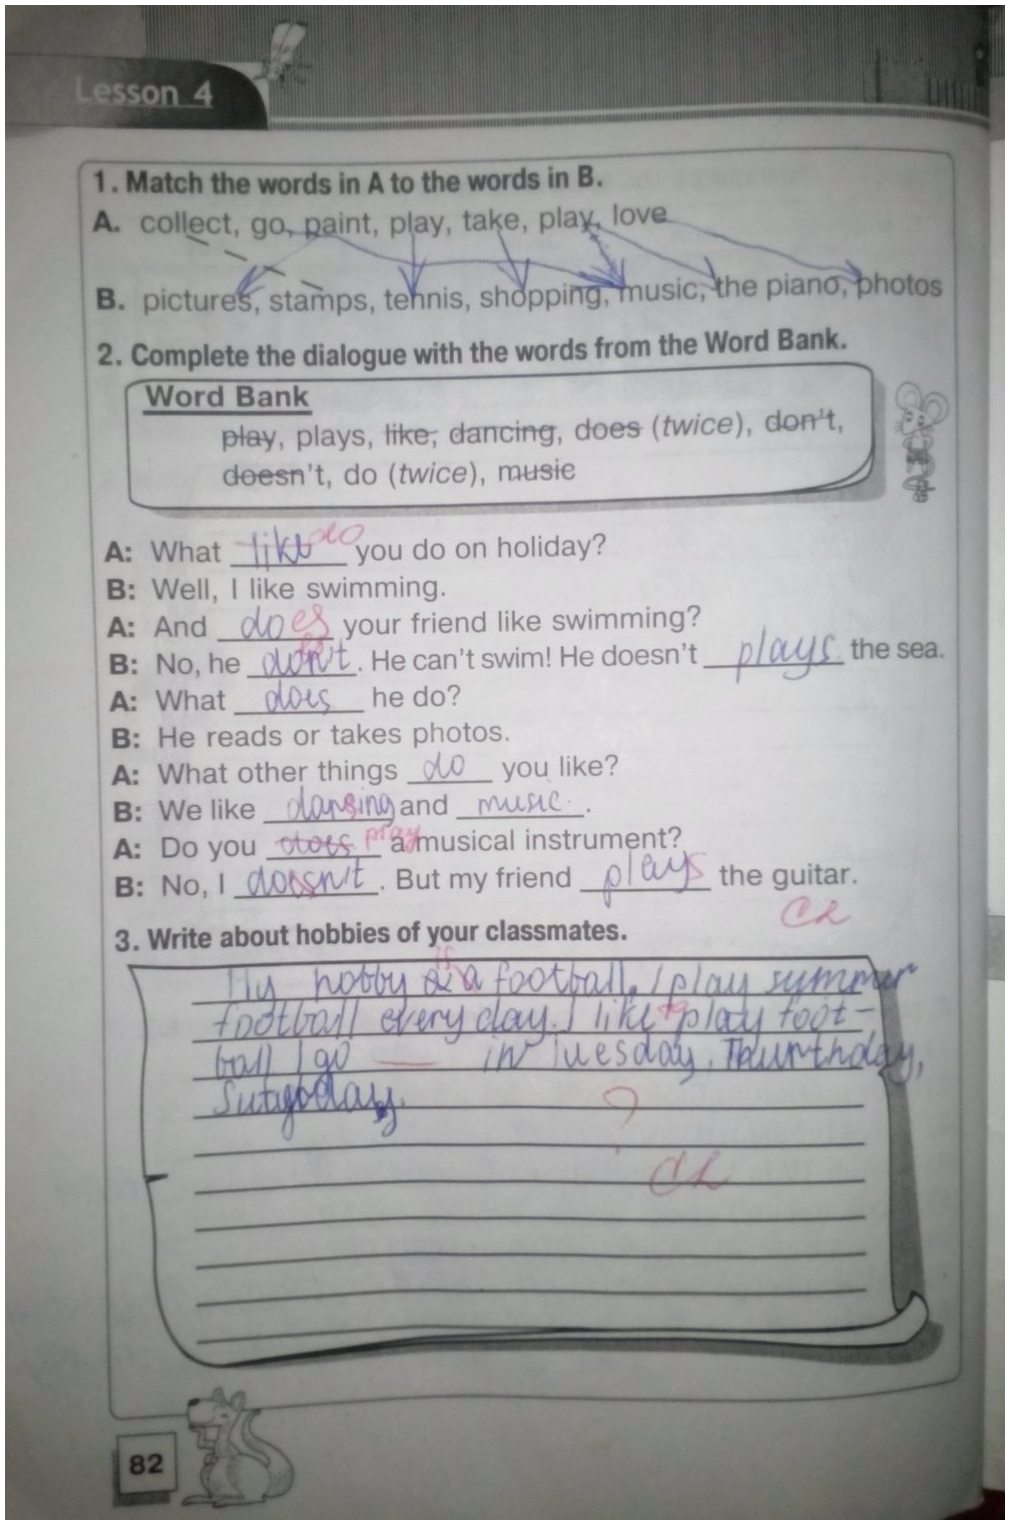 Lesson 4
1. Match the words in A to the words in B.
A. collect, go, paint, play, take, play, love
B. pictures, stamps, tennis, shopping, music, the piano, photos
2. Complete the dialogue with the words from the Word Bank.
Word Bank
play, plays, like, dancing, does (twice), don't,
doesn't, do (twice), music
A: What like do you do on holiday?
B: Well, I like swimming.
A: And does your friend like swimming?
B: No, he don't. He can't swim! He doesn't plays the sea.
A: What does he do?
B: He reads or takes photos.
A: What other things do you like?
B: We like dansing and music.
A: Do you does play a musical instrument?
B: No, I doesn't. But my friend plays the guitar.
3. Write about hobbies of your classmates.
My hobby is a football. I play summer
football every day. I like to play foot-
ball I go in Tuesday, Thurthday,
82